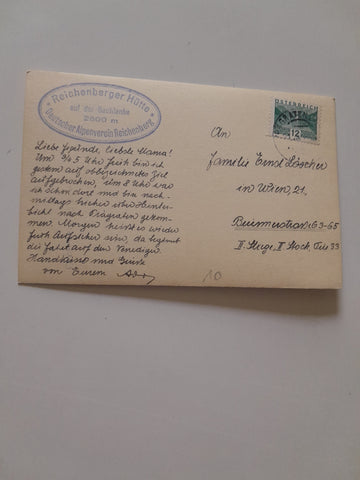 Reichenberger Hütte
auf der Bachlenke
2600 m
Deutscher Alpenverein Reichenberg
ÖSTERREICH
12
Liebe Freunde, liebste Mama!
Um 3/4 5 Uhr früh bin ich
gestern auf obbezeichnetes Ziel
aufgebrochen, um 8 Uhr war
ich schon dort und bin nach-
mittags hieher über Hinter-
bichl nach Prägraten gekom-
men. Morgen heißt es wieder
früh aufstehen, da beginnt
die Fahrt auf den Venediger.
Handküsse und Grüße
von Eurem
An
Familie Ernst Löscher
in Wien, 21.
63-65
II. Stiege, II. Stock, Türe 33
10